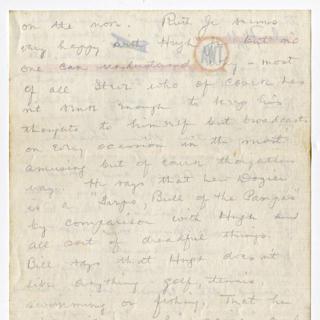 on the move. Ruth Jr seems
very happy with Hugh but no
one can understand why - most
of all Stew who of course has
not sense enough to keep his
thoughts to himself but broadcasts
on every occasion in the most
amusing but of course thoughtless
way. He says that her Dozier
is a "Sarge, Bull of the Pampas"
by comparison with Hugh and
all sort of dreadful things.
Bill says that Hugh doesn't
like anything golf, tennis,
swimming or fishing. That he